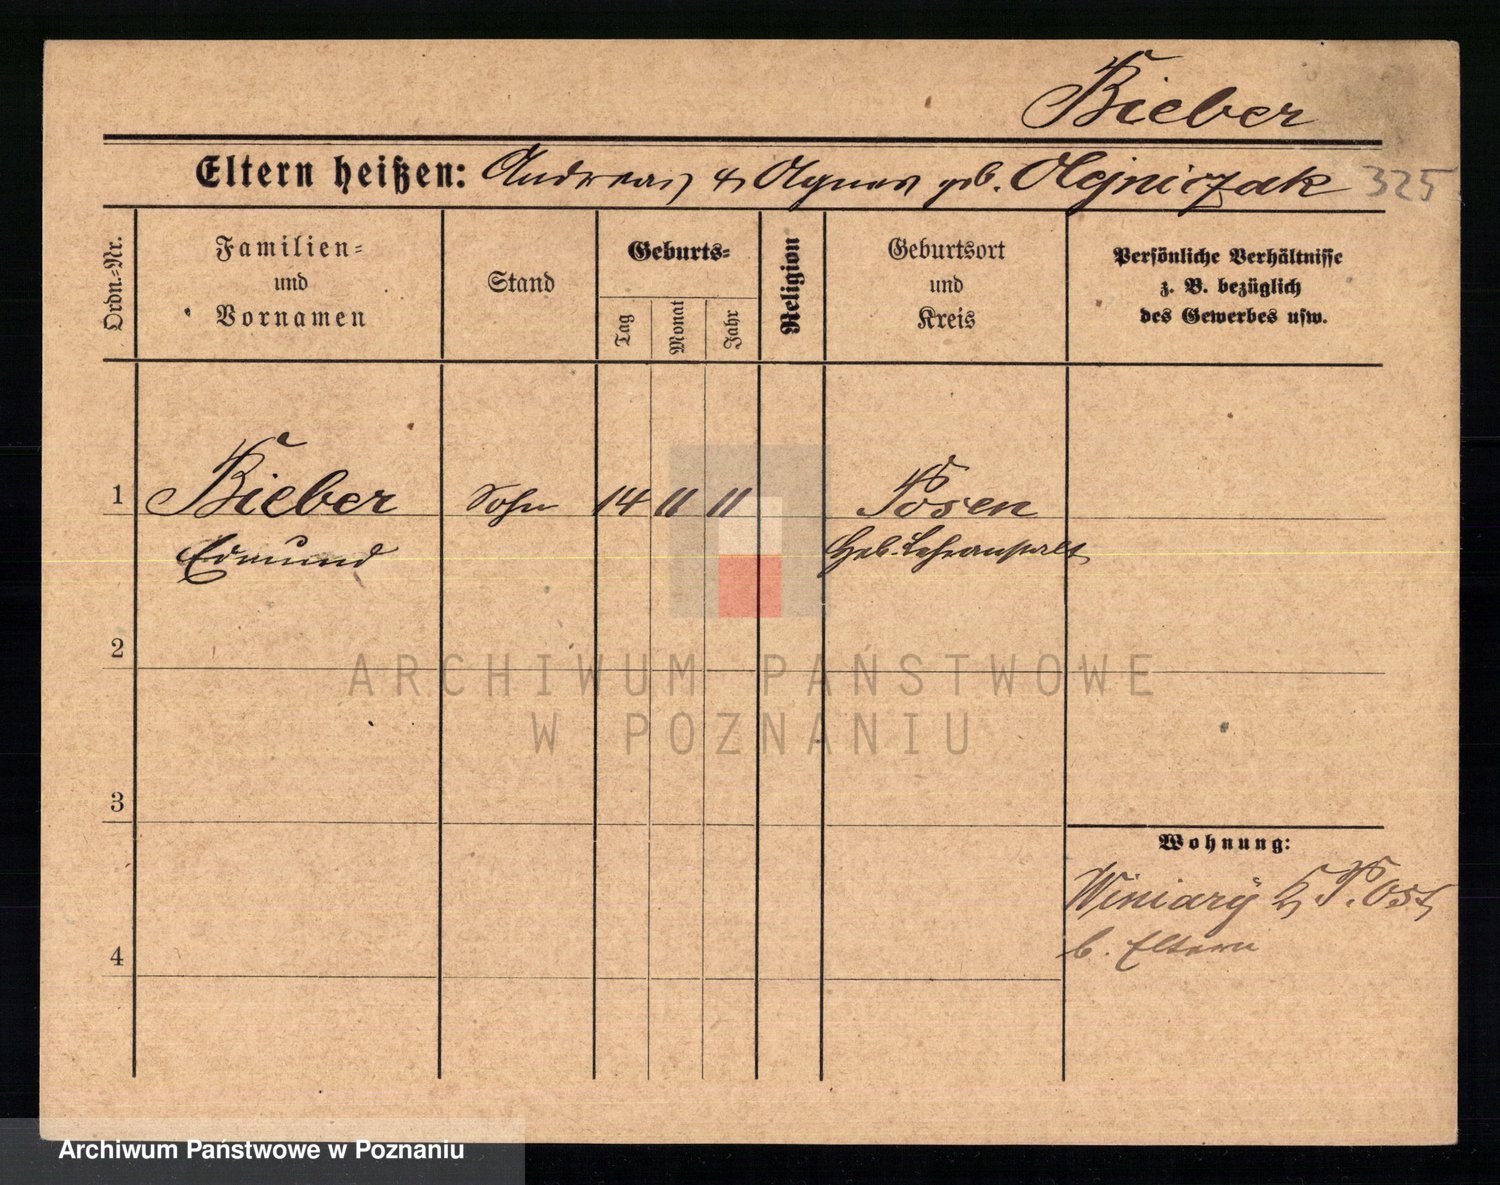 Bieber
Eltern heißen: Andreas & Agnes geb. Olejniczak 325
Ordn.-Nr.
Familien-
und
Vornamen
Stand
Geburts-
Tag
Monat
Jahr
Religion
Geburtsort
und
Kreis
Persönliche Verhältnisse
z. B. bezüglich
des Gewerbes usw.
1 Bieber Sohn 14 11 11 Posen
Edmund Heb. Lehranstalt
2
ARCHIWUM PAŃSTWOWE
W POZNANIU
3
Wohnung:
Winiary Kr. P. Ost
4
b. Eltern
Archiwum Państwowe w Poznaniu